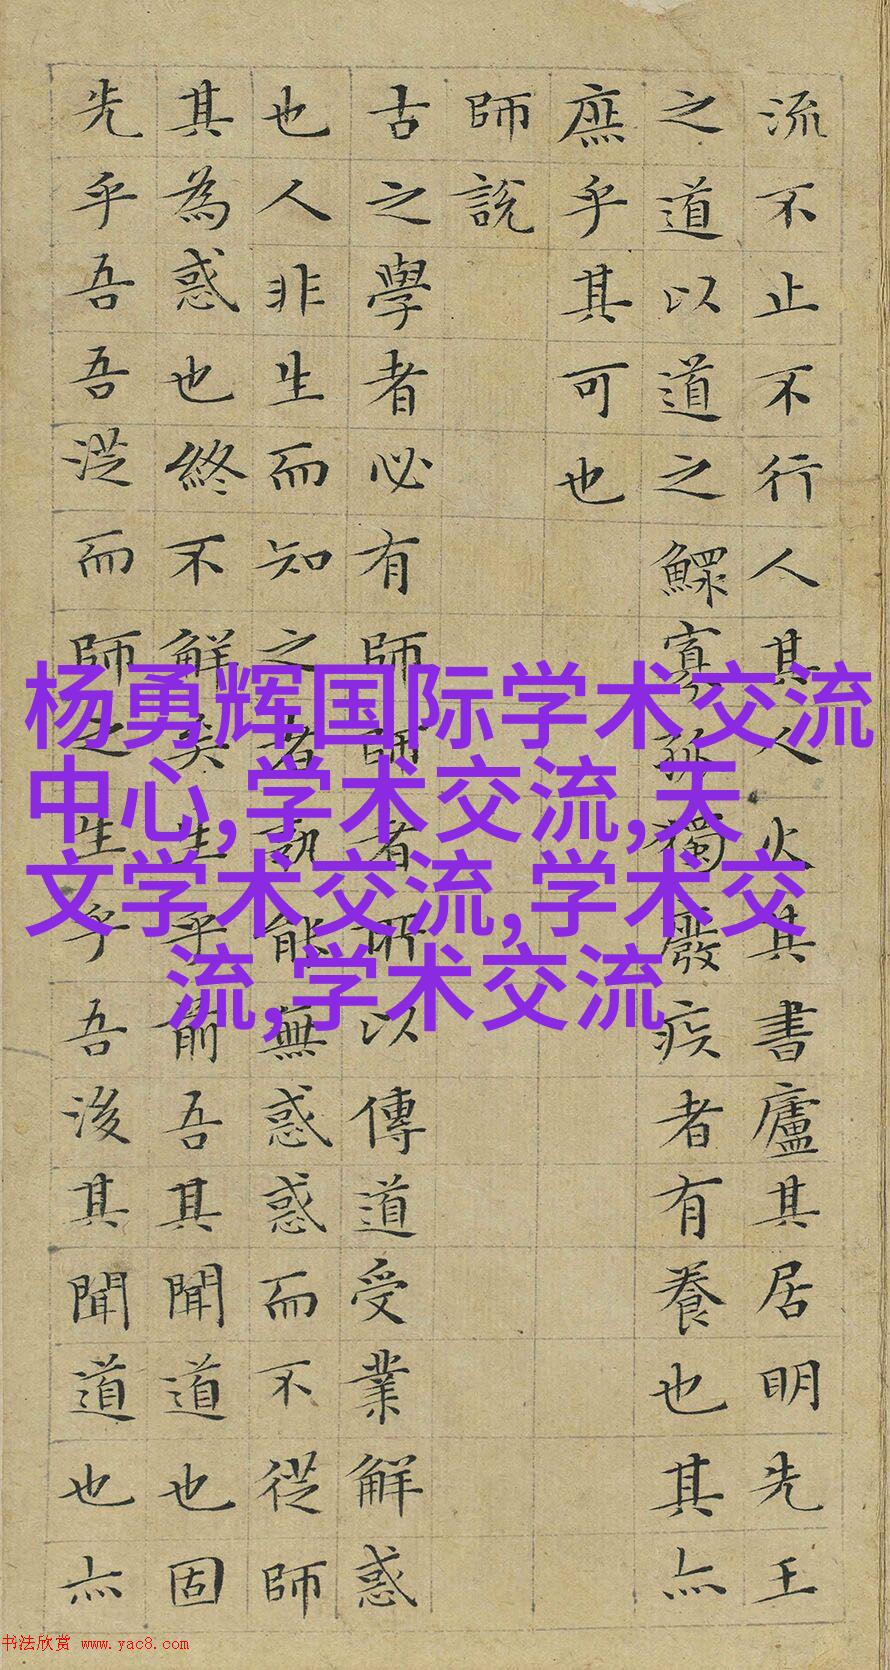 流不止不行人其人火其書廬其居明先王
之道以道之鰥寡孤獨廢疾者有養也其亦
庶乎其可也
師說
古之學者必有師師者所以傳道受業解惑
也人非生而知之者孰能無惑惑而不從師
其為惑也終不解矣生乎前吾其聞道也固
先乎吾吾從而師之生乎吾後其聞道也亦
杨勇辉国际学术交流
中心,学术交流,天
文学术交流,学术交
流,学术交流
书法欣赏 www.yac8.com